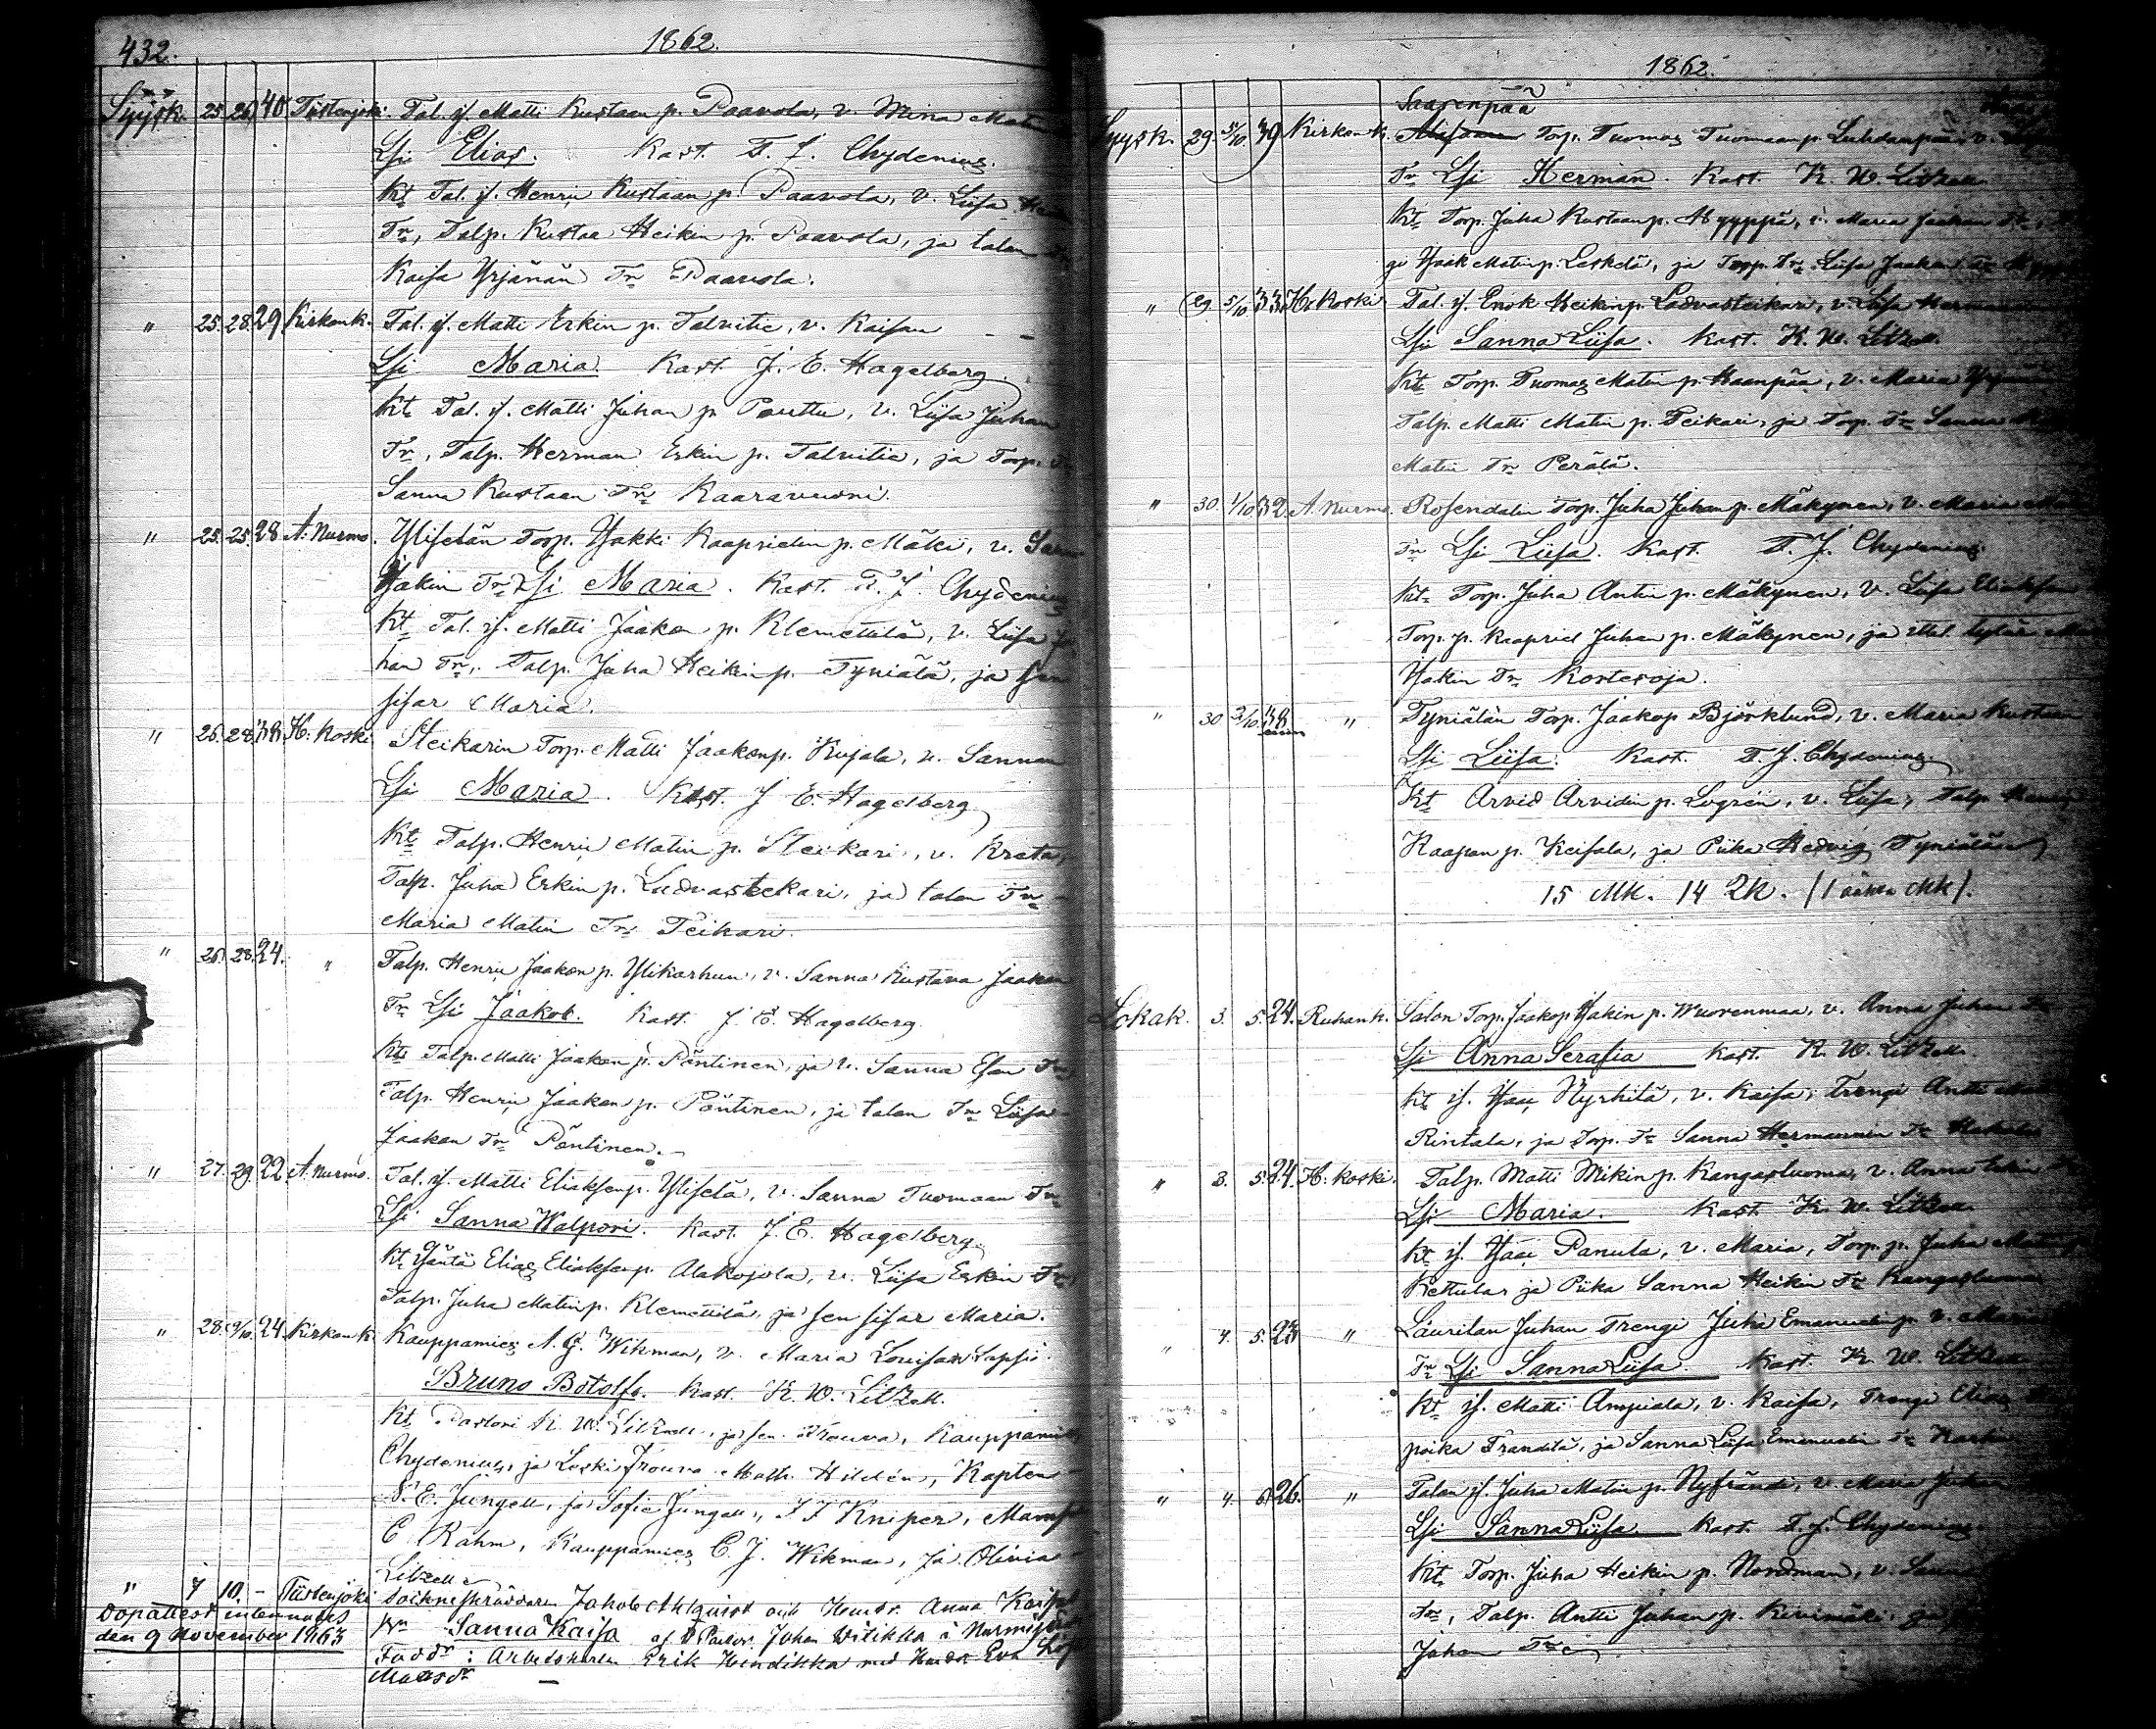 432.
1862.
Syysk. 25. 26. 40 Tiistenjoki. Tal. if. Matti Kustaan p. Paavola, v. Miina Matin
Lsi Elias. Kast. F. J. Chydenius.
Kt Tal. if. Henrik Kustaan p. Paavola, v. Liisa
Tr, Talp. Kustaa Heikin p. Paavola, ja talon Tr
Kaisa Yrjänän Tr Paavola.
" 25. 28. 29 Kirkonk. Tal. if. Matti Erkin p. Talvitie, v. Kaisan
Lsi Maria Kast. J. E. Hagelberg.
Kt Tal. if. Matti Juhan p. Pouttu, v. Liisa Juhan
Tr, Talp. Herman Erkin p. Talvitie, ja Torp. Tr
Sanna Kustaan Tr Kaaravuori.
" 25. 25. 28 A. Nurmo. Ylisetän Torp. Yakki Kaaprielin p. Mäki, v. Sanna
Yakin Tr Lsi Maria. Kast. F. J. Chydenius
Kt Tal. if. Matti Jaakon p. Klemettilän, v. Liisa Ju
han Tr, Talp. Juha Heikin p. Tyniälä, ja sen
sisar Maria.
" 25. 28. 38 H. koski Steikarin Torp. Matti Jaakonp. Kujala, v. Sannan
Lsi Maria. Kast. J. E. Hagelberg
Kt Talp. Henrik Matin p. Steikari, v. Kreta,
Talp. Juha Erkin p. Ladvasteikari, ja talon Tr
Maria Matin Tr Teikari.
" 26. 28. 24. " Talp. Henrik Jaakon p. Ylikarhun, v. Sanna Kustava Jaakon
Tr Lsi Jaakob. Kast. J. E. Hagelberg.
Kt Talp. Matti Jaakon p. Pöntinen, ja v. Sanna Esan Tr
Talp. Henrik Jaakon p. Pöntinen, ja talon Tr Liisa
Jaakon Tr Pöntinen.
" 27. 29. 22 A. Nurmo. Tal. if. Matti Eliaksenp. Ylisetä, v. Sanna Tuomaan Tr
Lsi Sanna Walpori. Kast. J. E. Hagelberg.
Kt Yäntä Elias Eliaksenp. Alakojola, v. Liisa Erkin Tr
Talp. Juha Matin p. Klemettilä, ja sen sisar Maria.
" 28. 9/10. 24. Kirkonk. Kauppamies A. G. Wikman, v. Maria Louisan Lapsi
Bruno Botolf. Kast. K. W. Litzell.
Kt Pastori K. W. Litzell, ja sen Frouva, Kauppamies
Chydenius, ja Leski Frouva Math. Hildén, Kapten
N. E. Jungell, ja Sofie Jungell, J. J. Kniper, Mams
C. Rahm, Kauppamies C. J. Wikman, ja Olivia
Litzell
" 7 10. - Tiistenjoki Sockneskräddaren Jakob Ahlquist och Hustr. Anna Kaisa
Dopattest inlemnades
Bn Sanna Kaisa af V Pastor Johan Witikka i Nurmijärvi
den 9 November 1863
Faddr: Arbetskarlen Erik Hindikka med Hustr Eva
Matsdr
1862.
Saarenpää
Syysk. 29 5/10. 39 Kirkonk. Torp. Tuomas Tuomaan p. Luhdanpään v.
Tr Lsi Herman. Kast. K. W. Litzell
Kt Torp. Juha Kustaanp. Hyyppä, v. Maria Jaakon Tr
gi Yaak Matin p. Leskelä, ja Torp. Tr Liisa Jaakon Tr
" 29. 5/10 33. H. koski Tal. if. Enok Heikin p. Ladvasteikari, v. Liisa Herman
Lsi Sanna Liisa. Kast. K. W. Litzell
Kt Torp. Tuomas Matin p. Haanpää, v. Maria Yrjänän
Talp. Matti Matin p. Teikari, ja Torp. Tr Sanna
Matin Tr Perälä.
" 30. 1/10 32 A. Nurmo. Rosendalin Torp. Juha Juhan p. Mäkynen, v. Maria
Tr Lsi Liisa. Kast. F. J. Chydenius.
Kt Torp. Juha Antin p. Mäkynen, v. Liisa Eliaksen
Torp. p. Kaapriel Juhan p. Mäkynen, ja ittel. tytär
Yakin Tr Kortesoja.
" 30 2/10. 38 " Tyniälän Torp. Jaakop Björklund, v. Maria Kustaan
Lsi Liisa. Kast. F. J. Chydenius.
Kt Arvid Arvidin p. Logrén, v. Liisa, Talp.
Kaapon p. Keisala, ja Piika Hedvig Tyniälän
15 Mk. 14 Zk. (1 Mk).
Lokak. 3. 5. 24. Ruhank. Salon Torp. Jaakop Yakin p. Wuorenmaa, v. Anna Juhan Tr
Lsi Anna Serafia Kast. K. W. Litzell.
Kt if. Yaak Nyrhilä, v. Kaisa, Trengi Antti
Rintala, ja Torp. Tr Sanna Hermannin Tr
" 3. 5. 24. H. koski. Talp. Matti Mikin p. Kangasluoma, v. Anna
Lsi Maria. Kast. K. W. Litzell
Kt if. Yaak Panula, v. Maria, Torp. p. Juha
Kettula, ja Piika Sanna Heikin Tr Kangasluoma
" 4. 5. 23 " Laurilan Juhan Trengi Juha Emanuelin p. v. Maria
Tr Lsi Sanna Liisa. Kast. K. W. Litzell
Kt if. Matti Ampiala, v. Kaisa, Trengi Elias
poika Frändilä, ja Sanna Liisa Emanuelin Tr
" 4. 6. 26. " Talon if. Juha Matin p. Nyfrändi, v. Maria Juhan
Lsi Sanna Liisa. Kast. F. J. Chydenius
Kt Torp. Juha Heikin p. Nordman, v. Sanna
Tr, Talp. Antti Juhan p. Kivimäki
Johan Tr